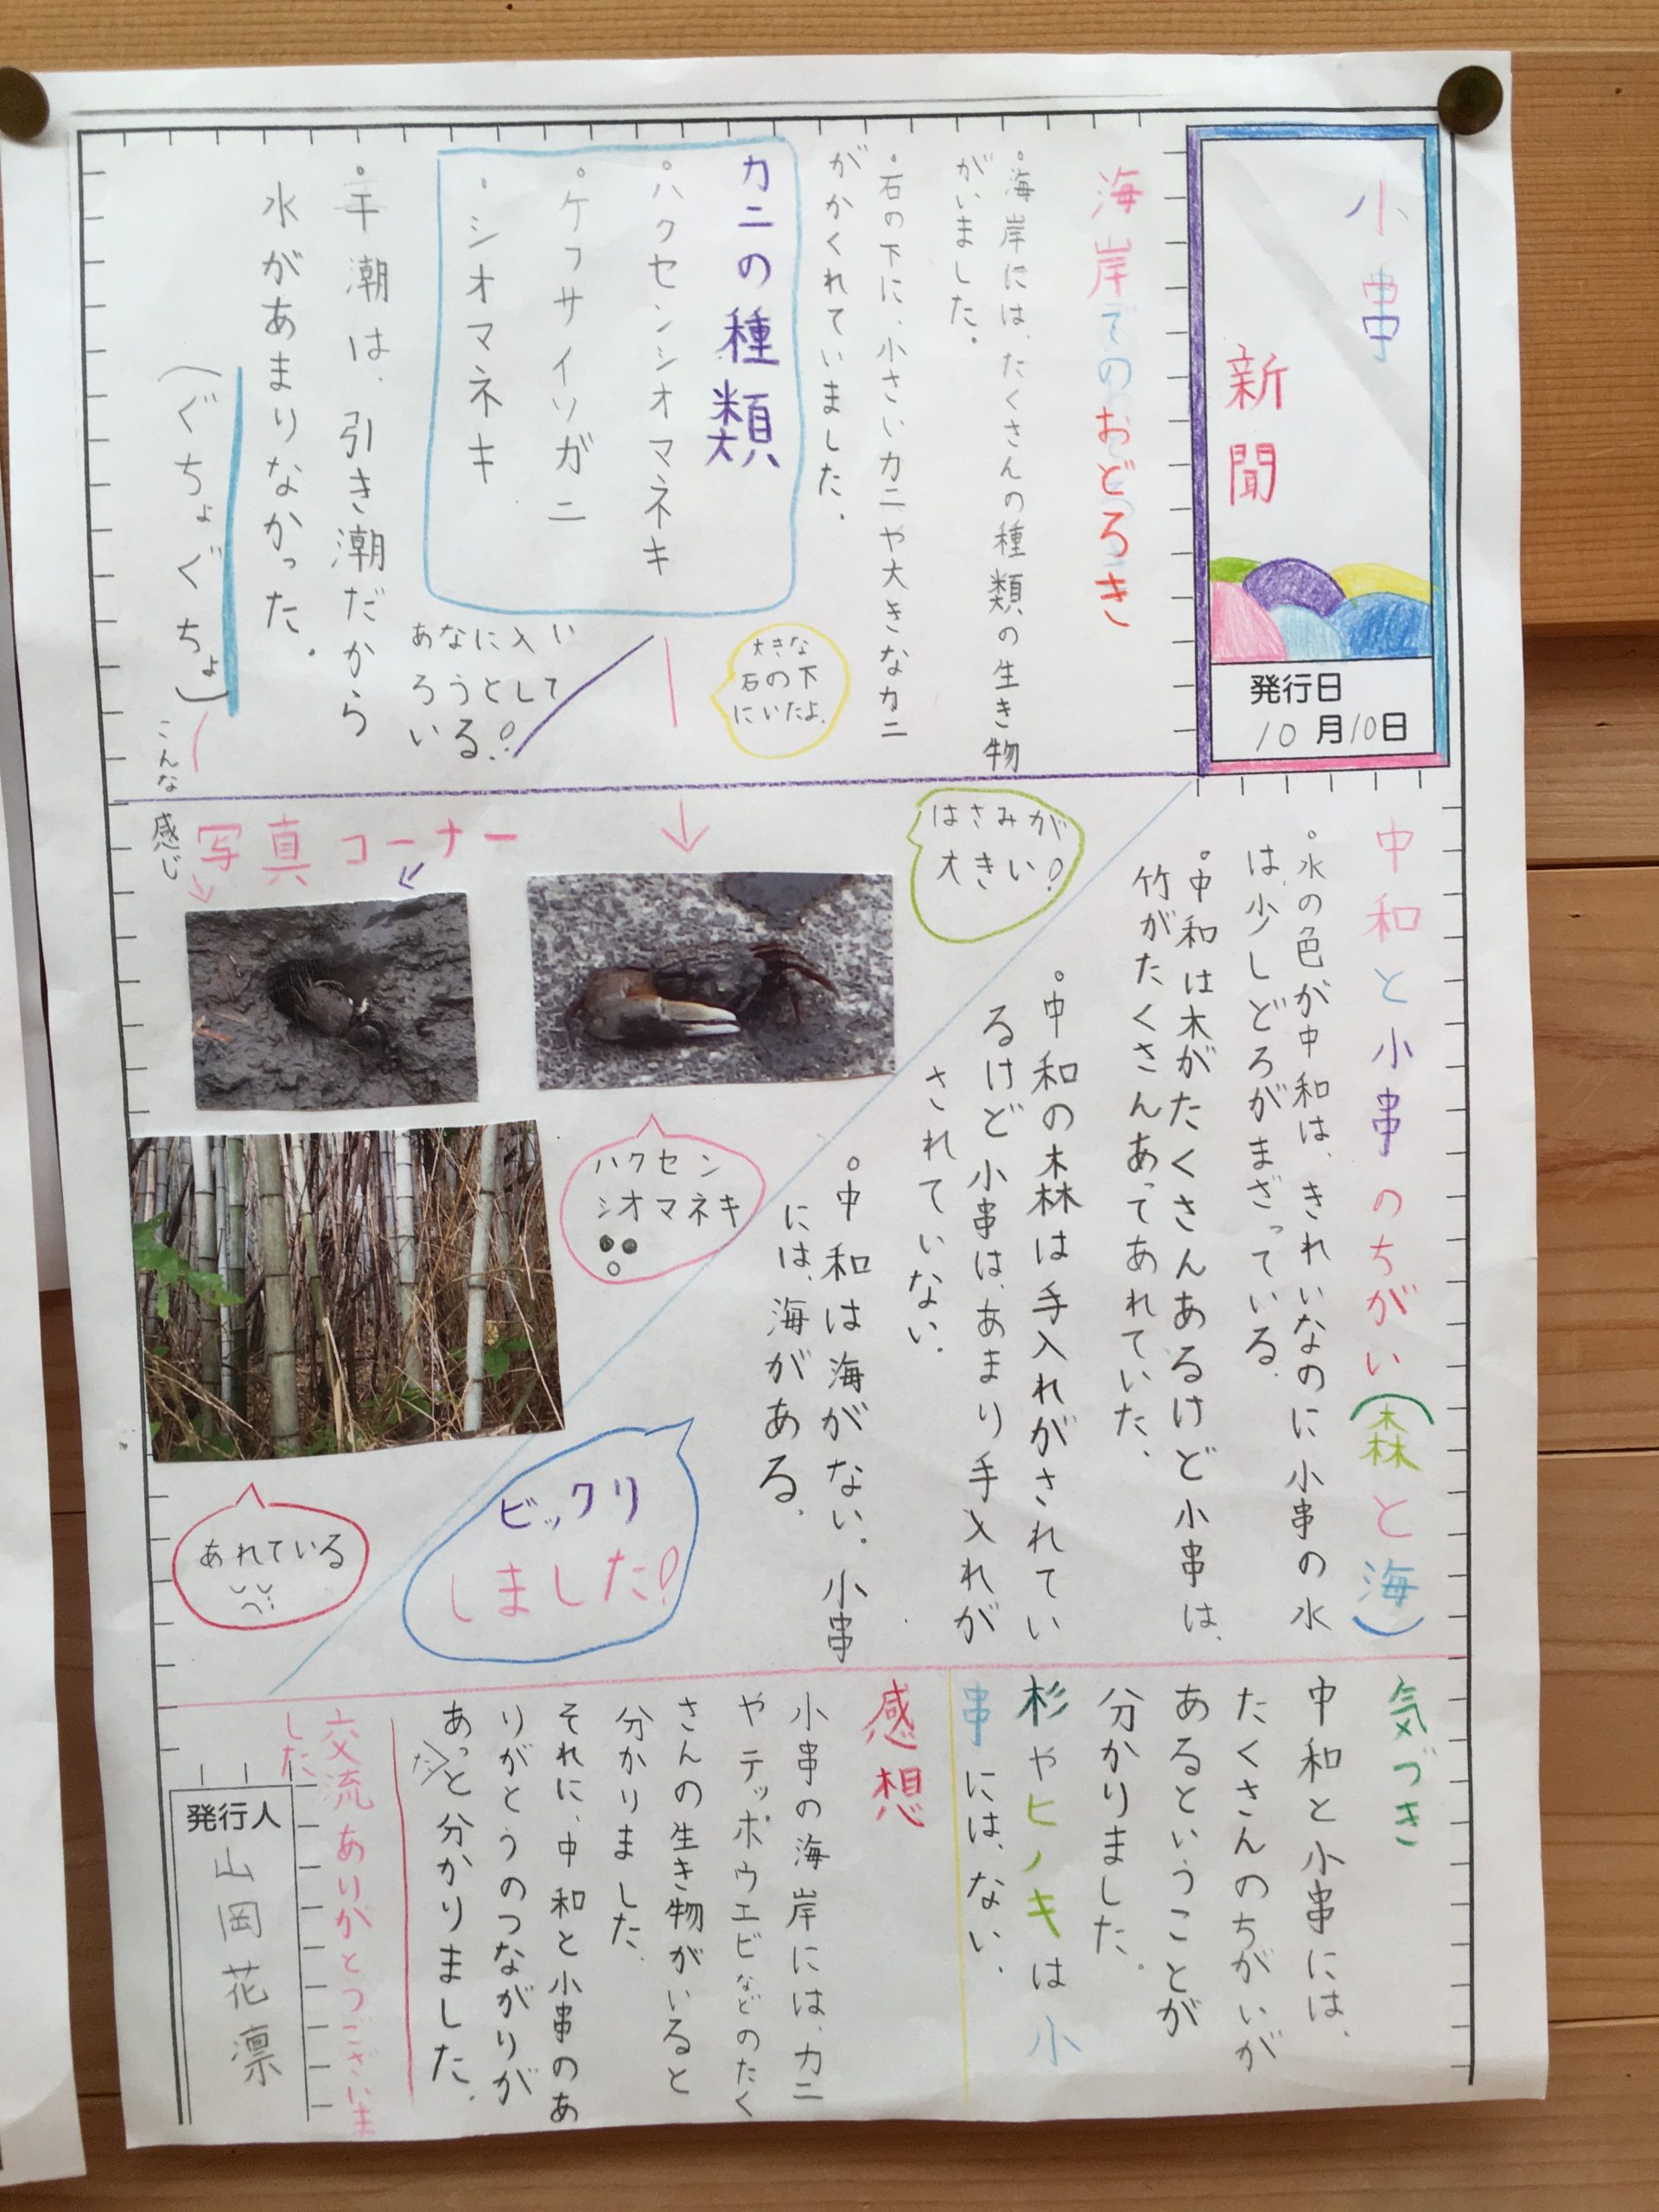 小串
新聞
発行日
10月10日
海岸でのおどろき
。海岸には、たくさんの種類の生き物
がいました。
。石の下に、小さいカニや大きなカニ
がかくれていました。
カニの種類
。ハクセンシオマネキ
。ケフサイソガニ
。シオマネキ
大きな
石の下
にいたよ。
あなに入い
ろうとして
いる!
。干潮は、引き潮だから
水があまりなかった。
(ぐちょぐちょ)
こんな感じ
中和と小串のちがい(森と海)
。水の色が中和は、きれいなのに小串の水
は、少しどろがまざっている。
。中和は木がたくさんあるけど小串は、
竹がたくさんあってあれていた。
。中和の森は手入れがされてい
るけど小串は、あまり手入れが
されていない。
。中和は海がない。小串
には、海がある。
はさみが
大きい!
写真コーナー
ハクセン
シオマネキ
あれている
ビックリ
しました!
気づき
中和と小串には、
たくさんのちがいが
あるということが
分かりました。
杉やヒノキは小
串には、ない。
感想
小串の海岸には、カニ
やテッポウエビなどのたく
さんの生き物がいると
分かりました。
それに、中和と小串のあ
りがとうのつながりが
あっと分かりました。
た
交流ありがとうございま
した
発行人
山岡花凛